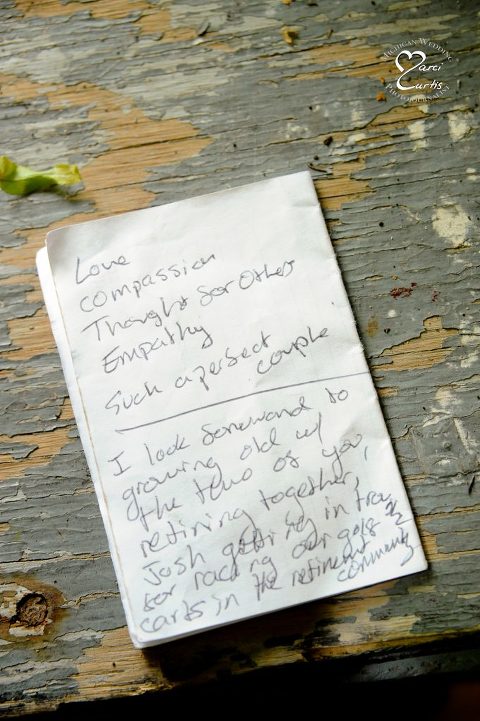 MICHIGAN WEDDING
Marci
Curtis
PHOTOJOURNALIST
Love
compassion
Thought for Others
Empathy
Such a perfect
couple
I look forward to
growing old w/
the two of you,
retiring together,
Josh getting in trouble
for racing our golf
carts in the retirement
community